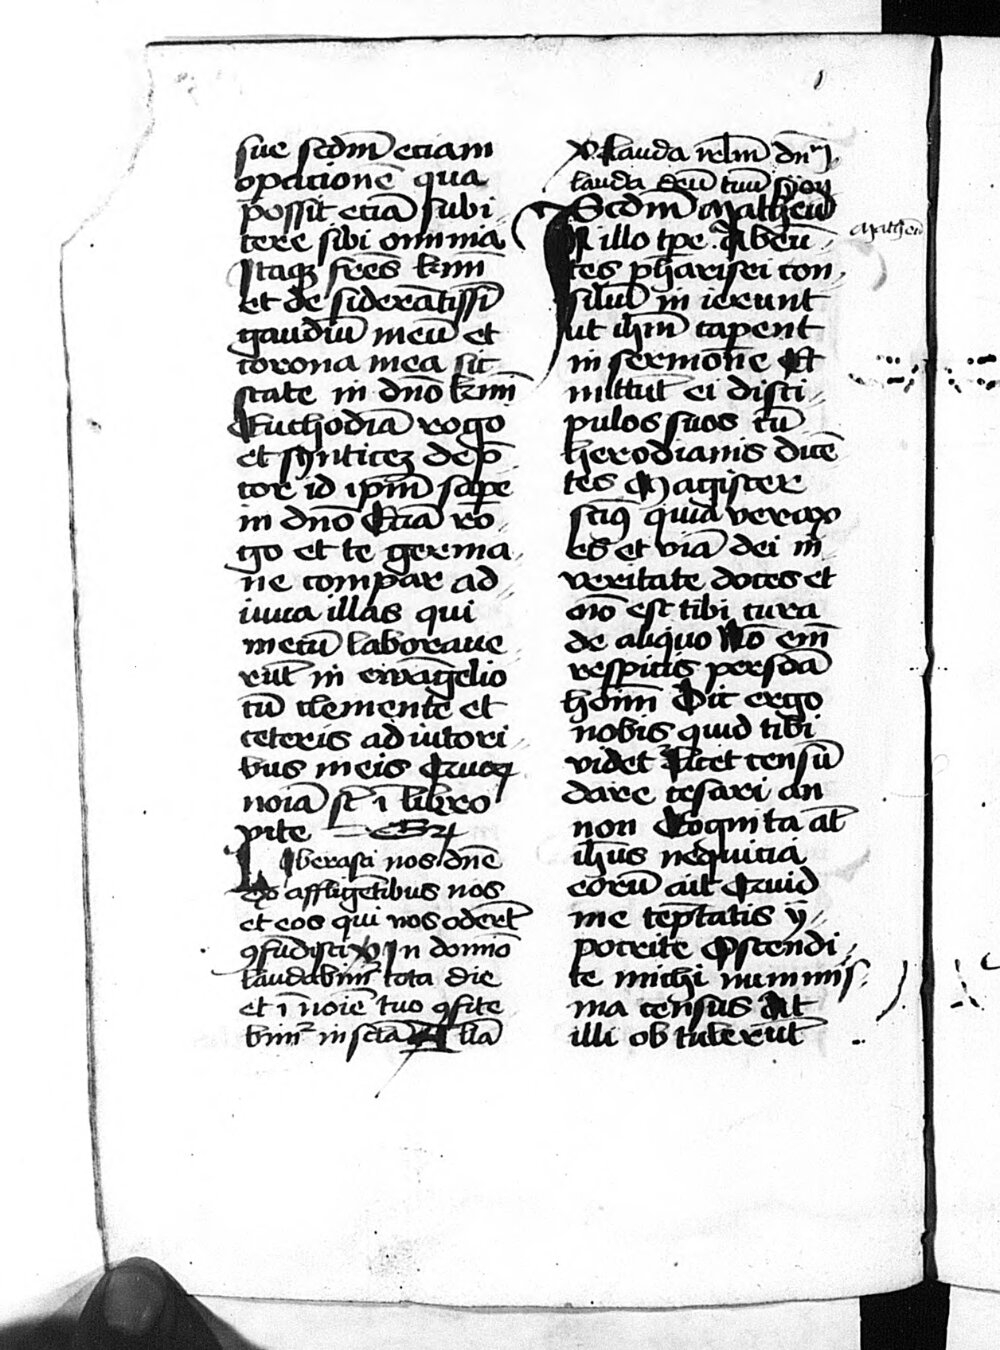 sue scdm̄ etiam
opationē qua
possit etiā subi
cere sibi omnia
Itaqz fres kmī
et desideratissī
gaudiū meū et
corona mea sic
state in dnō kmī
Euchodiā rogo
et sinticez dep̄
cor id ipm̄ sape
in dnō Etiā ro
go et te germa
ne compar ad
iuua illas qui
mecū laboraue
rūt in ewāgelio
cū clemente et
ceteris adiutori
bus meis Quoꝝ
noīa st̄ ī libro
vite Gr̄
Liberasti nos dnē
ex affligētibus nos
et eos qui nos oderūt
ꝯfudisti V In domīo
laudabimᷣ tota die
et ī noīe tuo ꝯfite
bimᷣ in sclā Alla
V Lauda irlm̄ dnm̄
lauda deū tuū syon
Scdm̄ Matheū
Matheū
In illo tpe Abeū
tes pharisei con
siliū inierunt
ut ihm̄ caperent
in sermone Et
mittūt ei disci
pulos suos cū
herodianis dicē
tes Magister
scimꝰ quia verax
es et viā dei in
veritate doces et
nō est tibi cura
de aliquo Nō em̄
respicis persōnā
homī Dic ergo
nobis quid tibi
videt Licet censū
dare cesari an
non Cognita aūt
ihus nequicia
eorū ait Quid
me teptatis ÿ
pocrite Ostendi
te michi numis
ma census At
illi obtulerūt